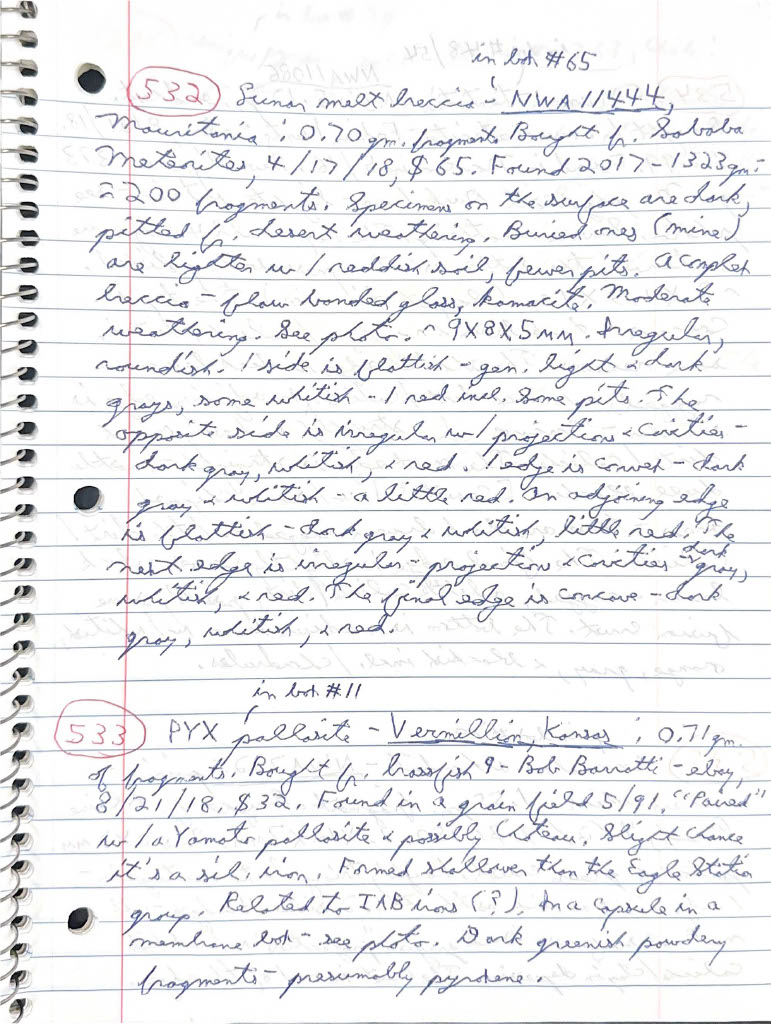 in box #65
532 Lunar melt breccia - NWA 11444,
Mauritania; 0.70 gm. fragments. Bought fr. Sababa
Meteorites, 4/17/18, $65. Found 2017 - 1323 gm -
≈ 200 fragments. Specimens on the surface are dark,
pitted fr. desert weathering. Buried ones (mine)
are lighter w/ reddish soil, fewer pits. A complex
breccia - flow banded glass, kamacite. Moderate
weathering. See photo. ~ 9X8X5MM. Irregular,
roundish. 1 side is flattish - gen. light & dark
grays, some whitish - 1 red incl. Some pits. The
opposite side is irregular w/ projections & cavities -
dark gray, whitish, & red. 1 edge is convex - dark
gray & whitish - a little red. An adjoining edge
is flattish - dark gray & whitish, little red. The
next edge is irregular - projections & cavities - dark gray,
whitish, & red. The final edge is concave - dark
gray, whitish, & red.
in box #11
533 PYX pallasite - Vermillion, Kansas; 0.71 gm.
of fragments. Bought fr. brassfish 9 - Bob Barratti - ebay,
8/21/18, $32. Found in a grain field 5/91. "Paired"
w/ a Yamato pallasite & possibly Choteau. Slight chance
it's a sil. iron. Formed shallower than the Eagle Station
group. Related to IAB irons (?). In a capsule in a
membrane box - see photo. Dark greenish powdery
fragments - presumably pyroxene.